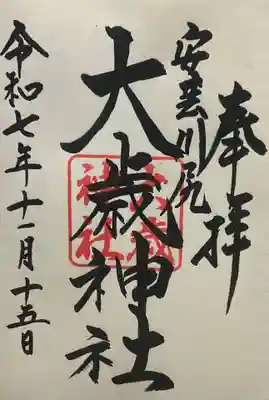 奉拝
安芸川尻
大歳神社
大歳神社
令和七年十一月十五日